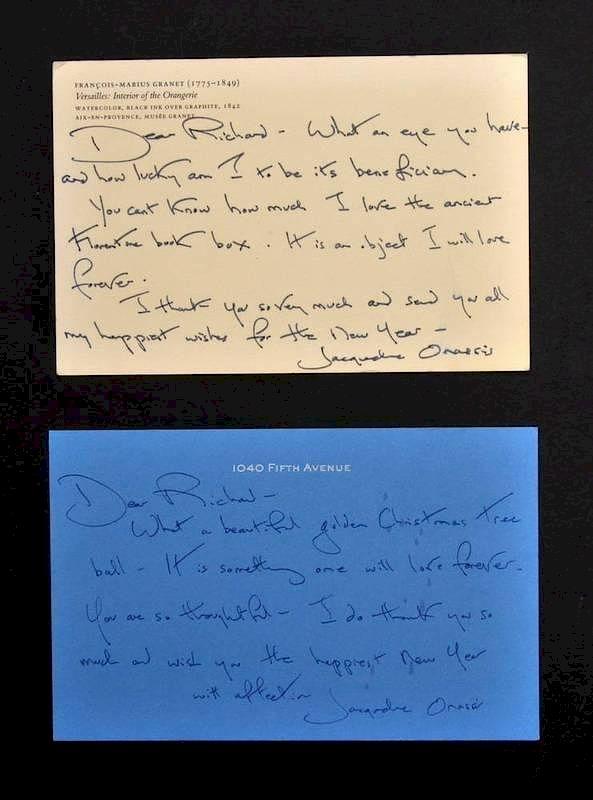 FRANÇOIS-MARIUS GRANET (1775–1849)
Versailles: Interior of the Orangerie
WATERCOLOR, BLACK INK OVER GRAPHITE, 1842
AIX-EN-PROVENCE, MUSÉE GRANET
Dear Richard - What an eye you have -
and how lucky am I to be its beneficiary.
You cant know how much I love the ancient
Florentine book box. It is an object I will love
forever.
I thank you so very much and send you all
my happiest wishes for the New Year -
Jacqueline Onassis
1040 FIFTH AVENUE
Dear Richard -
What a beautiful golden Christmas tree
ball - It is something one will love forever -
You are so thoughtful - I do thank you so
much and wish you the happiest New Year
with affection
Jacqueline Onassis